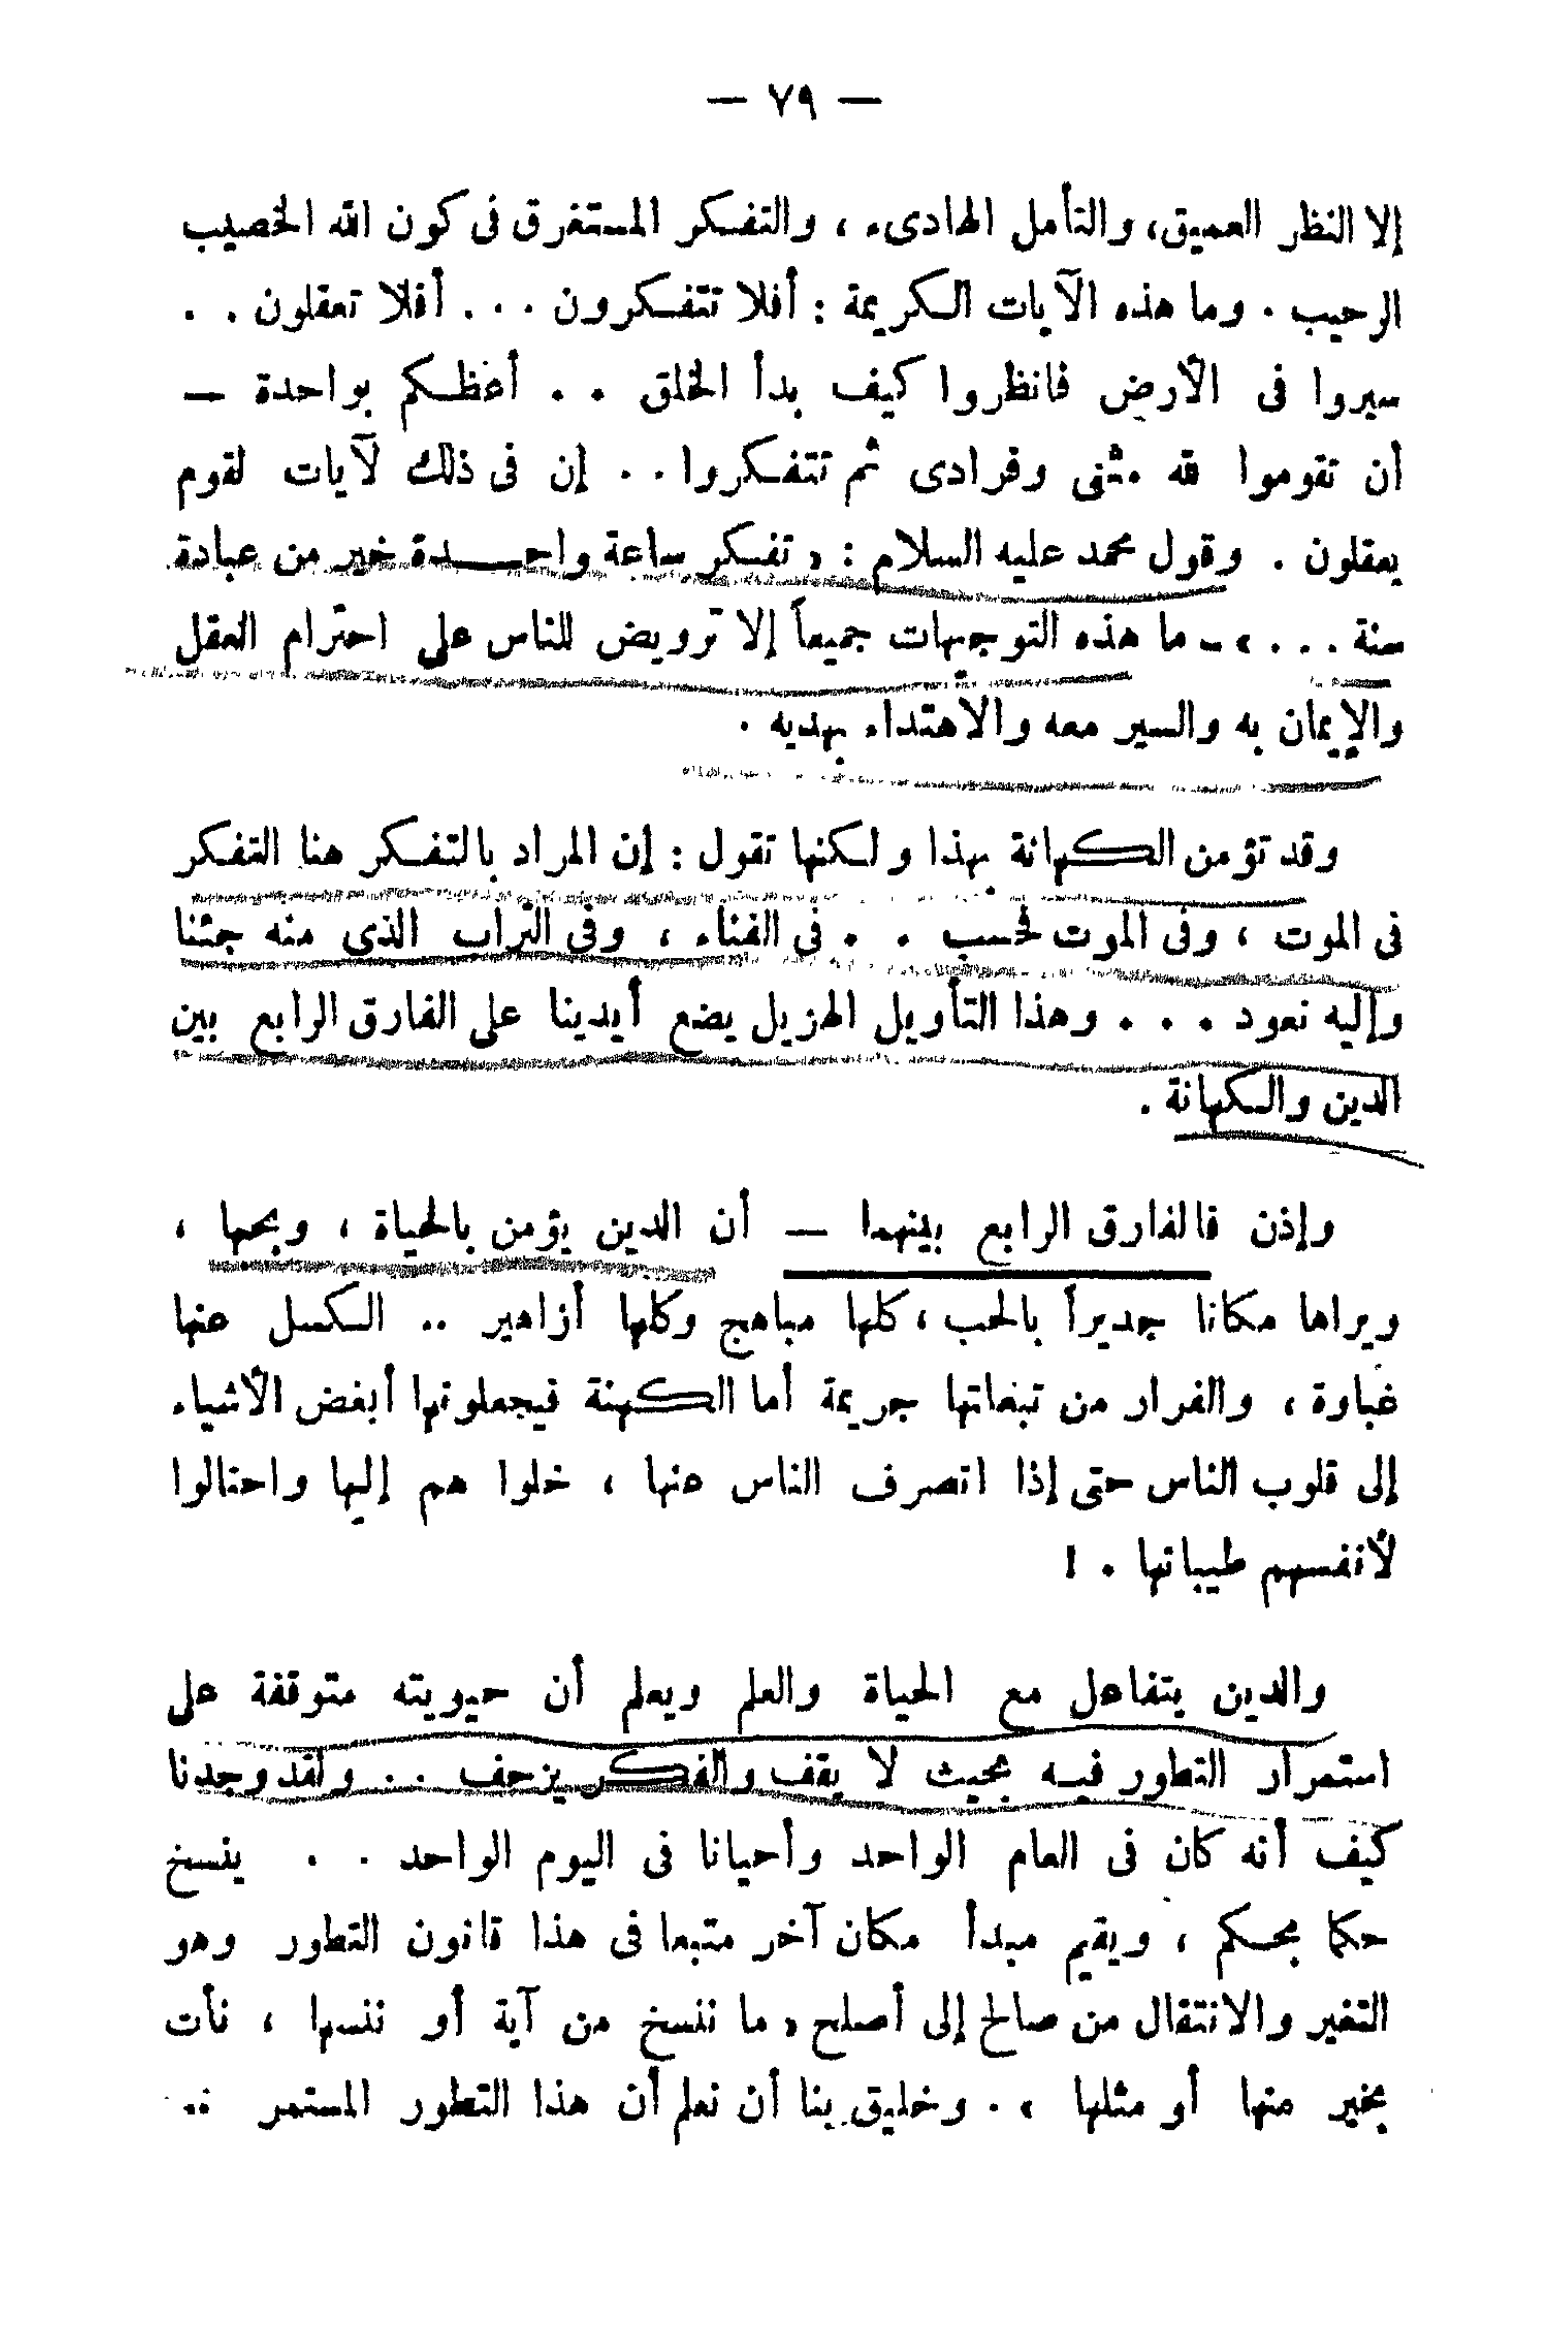 — ٧٩ —
إلا النظر العميق، والتأمل الهادىء ، والتفكر المستغرق فى كون الله الخصيب
الرحيب . وما هذه الآيات الكريمة : أفلا تتفكرون . . . أفلا تعقلون . .
سيروا فى الأرض فانظروا كيف بدأ الخلق . . أعظكم بواحدة —
أن تقوموا لله مثنى وفرادى ثم تتفكروا . . إن فى ذلك لآيات لقوم
يعقلون . وقول محمد عليه السلام : « تفكر ساعة واحدة خير من عبادة
سنة . . . » - ما هذه التوجيهات جميعاً إلا ترويض للناس على احترام العقل
والإيمان به والسير معه والاهتداء بهديه .
وقد تؤمن الكهانة بهذا ولكنها تقول : إن المراد بالتفكر هنا التفكر
فى الموت ، وفى الموت فحسب . . فى الفناء ، وفى التراب الذى منه جئنا
وإليه نعود . . . وهذا التأويل الهزيل يضع أيدينا على الفارق الرابع بين
الدين والكهانة .
وإذن فالفارق الرابع بينهما — أن الدين يؤمن بالحياة ، وبحبها ،
ويراها مكانا جديراً بالحب ، كلها مباهج وكلها أزاهير .. الكسل عنها
غباوة ، والفرار من تبعاتها جريمة أما الكهنة فيجعلونها أبغض الأشياء
إلى قلوب الناس حتى إذا انصرف الناس عنها ، خلوا هم إليها واحتالوا
لأنفسهم طيباتها . !
والدين يتفاعل مع الحياة والعلم ويعلم أن حيويته متوقفة على
استمرار التطور فيه بحيث لا يقف والفكر يزحف . . ولقد وجدنا
كيف أنه كان فى العام الواحد وأحيانا فى اليوم الواحد . . ينسخ
حكما بحكم ، ويقيم مبدأ مكان آخر متبعا فى هذا قانون التطور وهو
التغير والانتقال من صالح إلى أصلح « ما ننسخ من آية أو ننسها ، نأت
بخير منها أو مثلها » . وخليق بنا أن نعلم أن هذا التطور المستمر ..